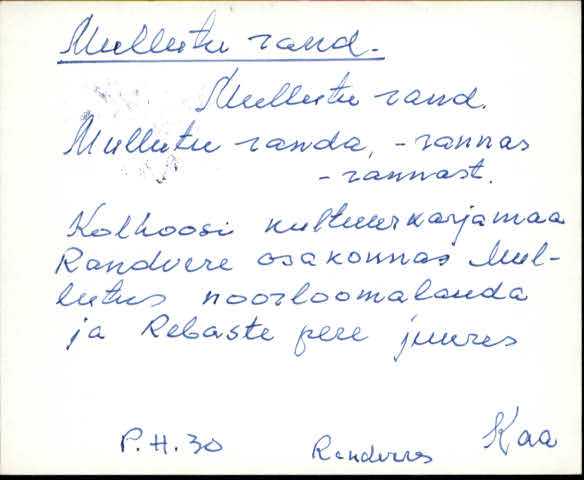 Mullutu rand.
Mullutu rand.
Mullutu randa, -rannas
-rannast.
Kolhoosi kultuurkarjamaa
Randvere osakonnas Mul-
lutus noorloomalauda
ja Rebaste pere juures
P.H.30 Randveres Kaa